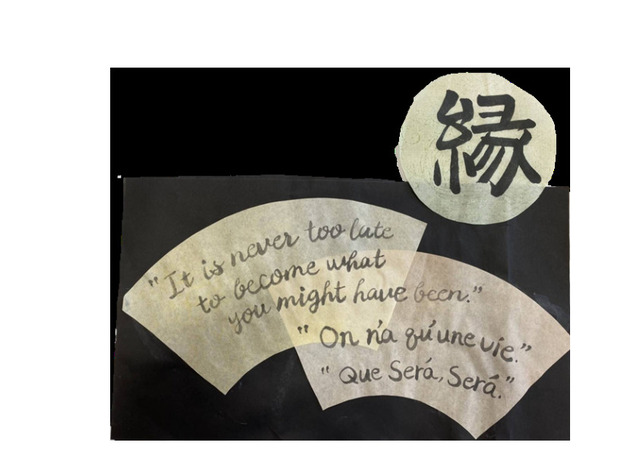 縁
"It is never too late
to become what
you might have been."
"On n'a qu'une vie."
"Que Será, Será."